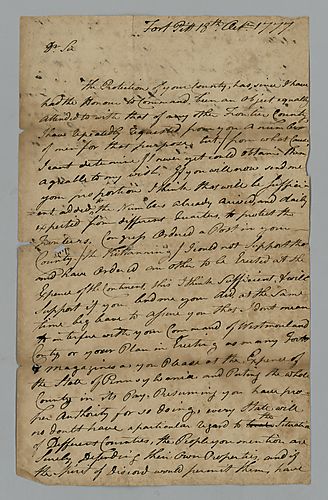 Fort Pitt 18th Octr 1777
Dr Sir
The Protection of your County, has, since I have
had the Honour to Command, been an object equally
attended to with that of any other Frontier County
I have repeatedly requested from you a number
of men for that purpose, but, from what Cause
I cant determine I never yet could obtain them
agreable to my wish, If you will now send me
your proportion I think that will be suffici-
ent added to the Numbers already arrived and daily
expected from different Quarters, to protect the
Frontiers, Congress Ordered a Post in your
County (the Kittanning) I could not Support that
and have Ordered an other to be Erected at the
Expence of the Continent, this I think Sufficient, & will
Support if you lend me your Aid, at the Same
time beg leave to assure you that I dont mean
to interfere with your Command of Westmorland
County or your Plan in Erecting as many Forts
& Magazenes as you Please at the Expence of
the State of Pennsylvania and Puting the whole
County in its Pay. Presuming you have pro-
per Authority for so doing, every State will
no doubt have a particular regard to the Situation
of Different Counties, the People you mention are
surely defending their Own Properties, and if
the spirit of discord would permit them, have